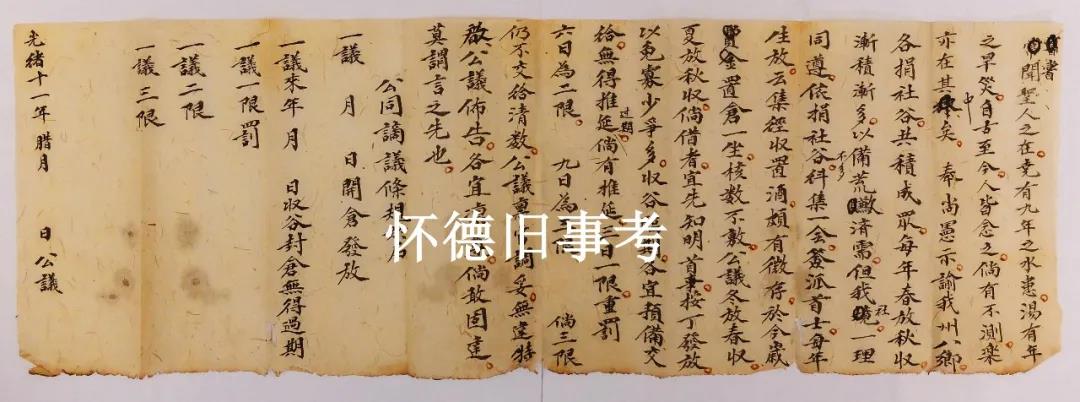 書聞聖人之在堯有九年之水患湯有年
之旱災自古至今人皆愈之倘有不測樂
亦在其中矣 奉尚憲示諭我州八鄉
各捐社谷共積成眾每年春放秋收
漸積漸多以備荒濟需但我社一理
同遵依捐社谷科集一会簽派首士每年
生放云集經收置酒頗有徵存於今歲
置倉一坐核數不敷公議冬放春收
夏放秋收倘借者宜先知明首按丁發放
以免寡少爭多收谷各宜預備交
给無得推延倘有过期推延三日一限重罰
六日為二限 九日為 倘三限
仍不交给清數公議重罰妥無違特
啟公議佈告各宜 倘敢固違
莫謂言之先也
公同謪議條規
一議 月 日開倉發放
一議來年 月 日收谷封倉無得過期
一議一限罰
一議二限
一議三限
光緒十一年腊月 日 公議
怀德旧事考